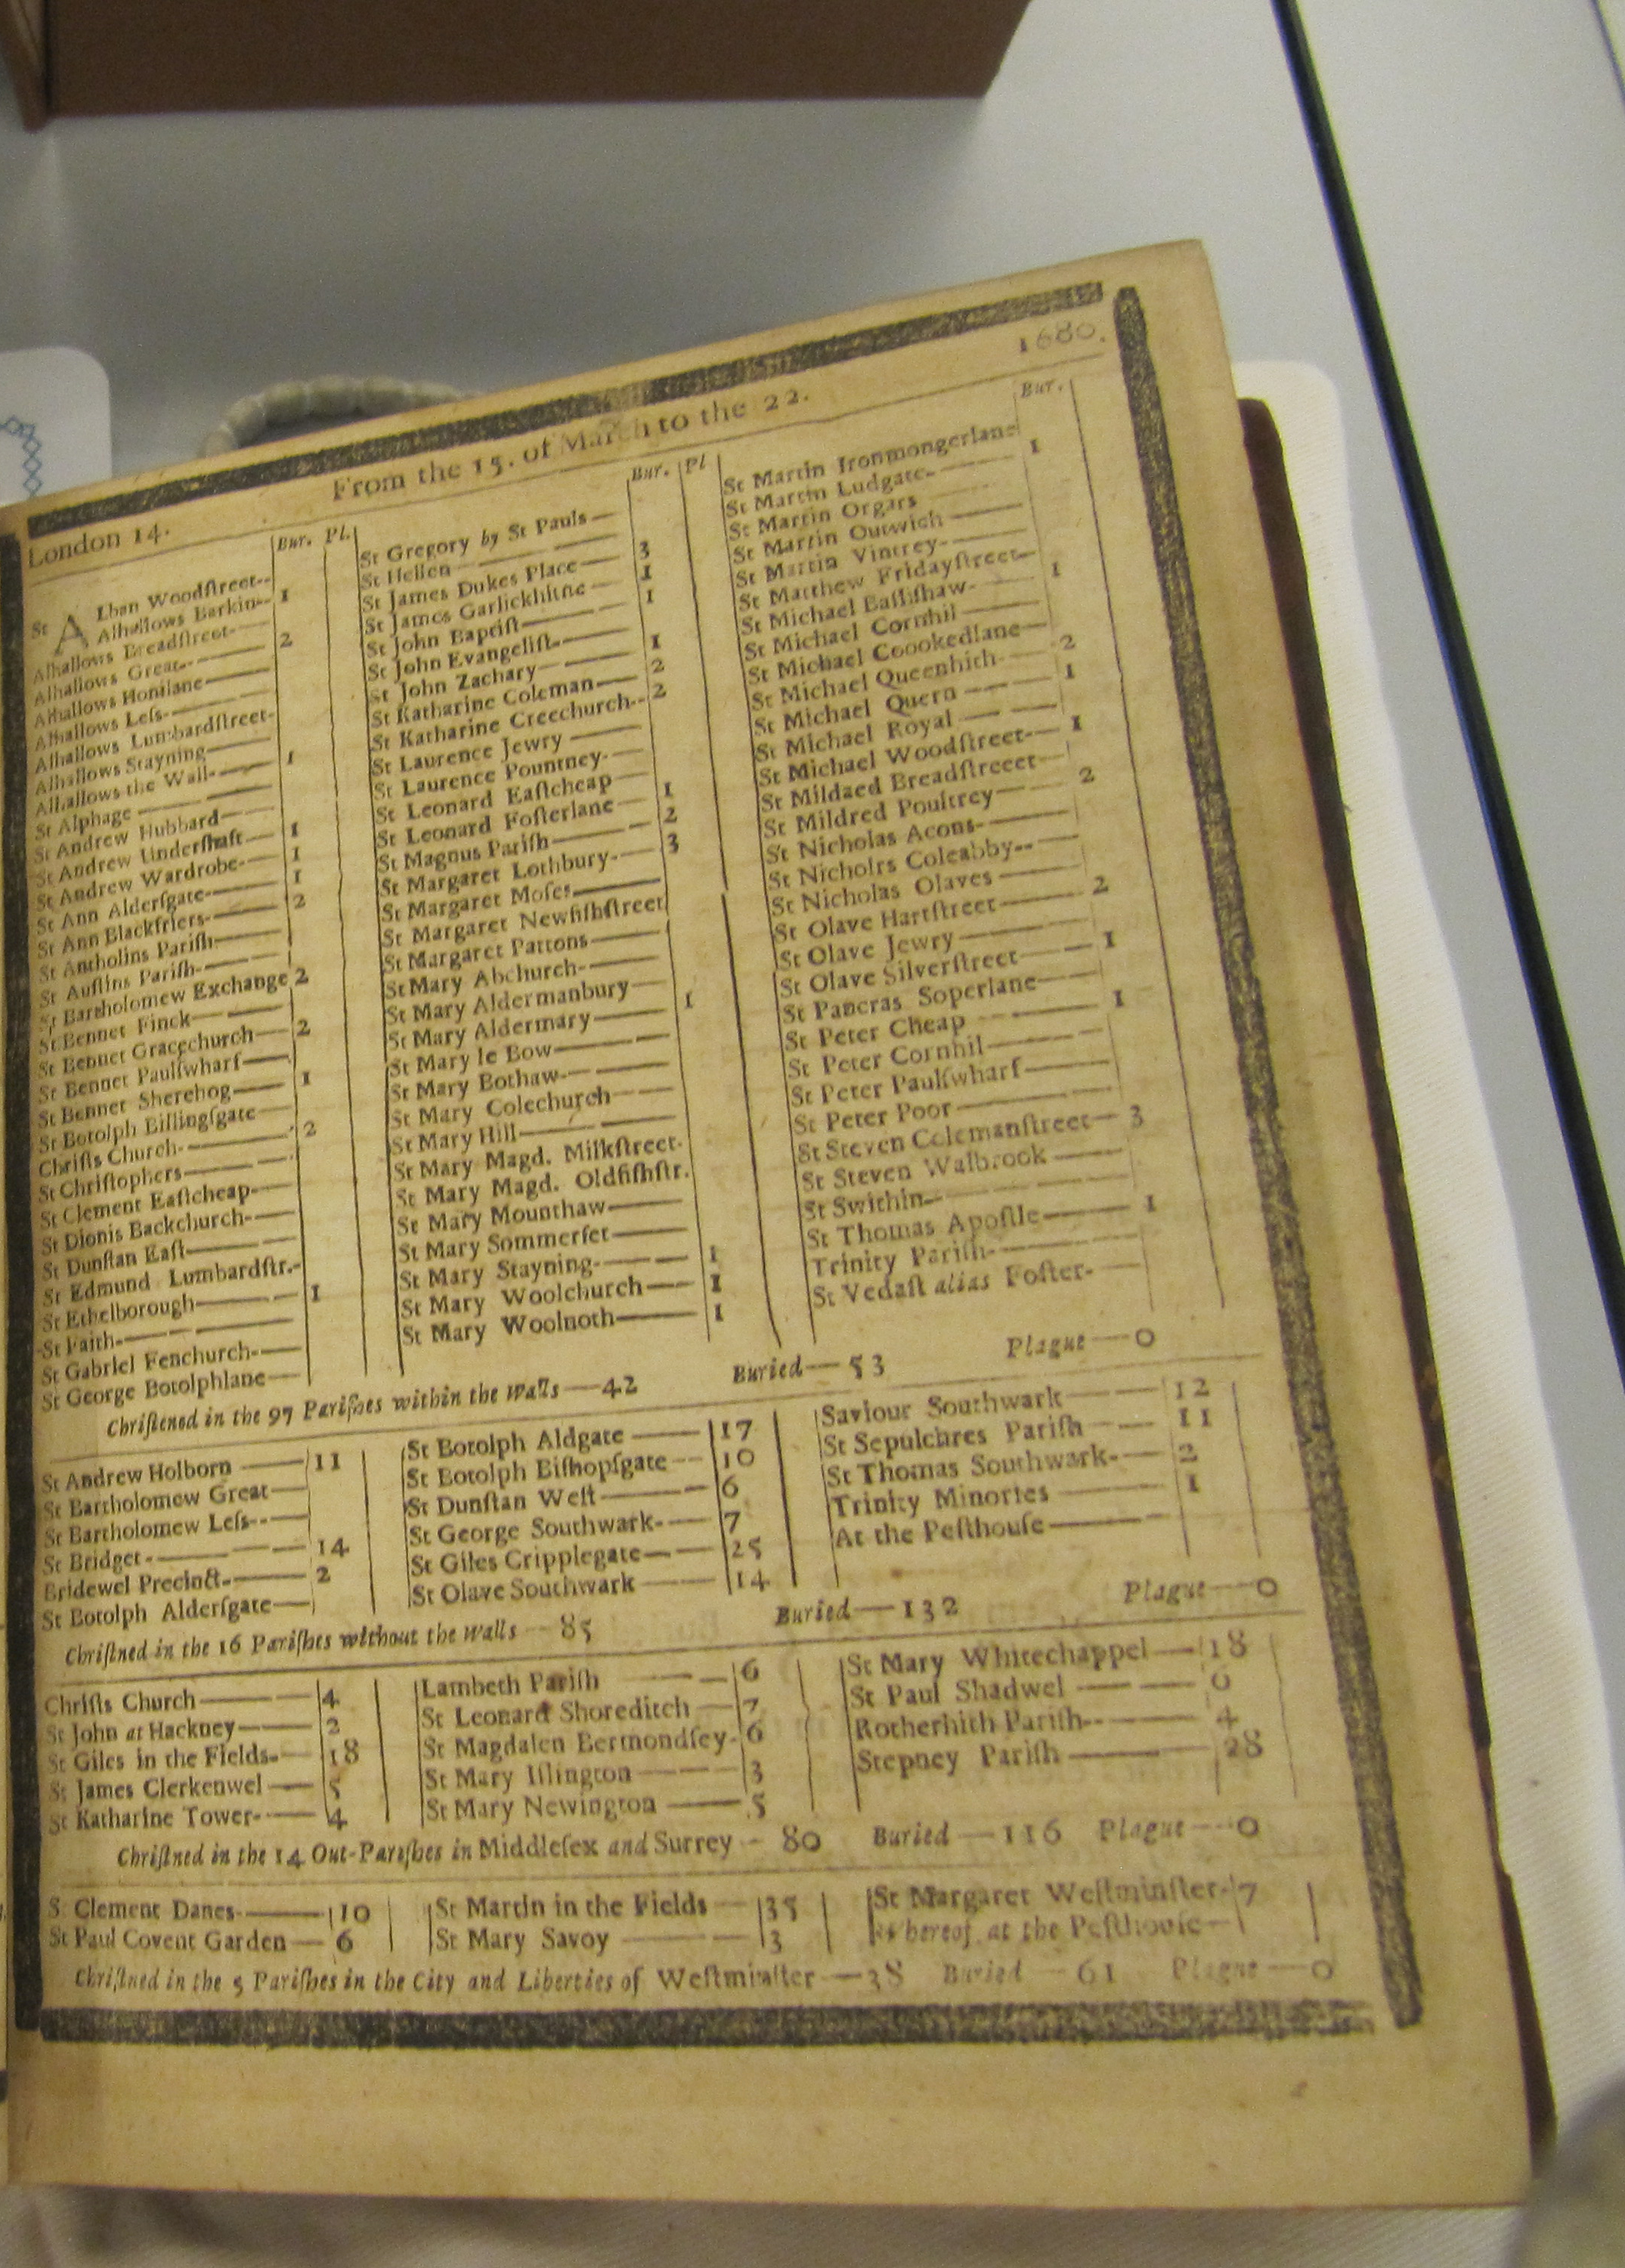 London 14.
From the 15. of March to the 22.
1680.
Bur. Pl.
St Alban Woodſtreet--
Alhallows Barkin-- 1
Alhallows Breadſtreet-
Alhallows Great-- 2
Alhallows Honilane
Alhallows Leſs-
Alhallows Lumbardſtreet-
Alhallows Stayning
Alhallows the Wall- 1
St Alphage
St Andrew Hubbard
St Andrew Underſhaft 1
St Andrew Wardrobe- 1
St Ann Alderſgate 1
St Ann Blackfriers- 2
St Antholins Pariſh
St Auſtins Pariſh-
St Bartholomew Exchange 2
St Bennet Finck
St Bennet Gracechurch 2
St Bennet Paulſwharf
St Bennet Sherehog 1
St Botolph Billingſgate
Chriſts Church- 2
St Chriſtophers
St Clement Eaſtcheap-
St Dionis Backchurch-
St Dunſtan Eaſt
St Edmund Lumbardſtr.-
St Ethelborough 1
St Faith-
St Gabriel Fenchurch-
St George Botolphlane
Bur. Pl
St Gregory by St Pauls
St Hellen
St James Dukes Place 3
St James Garlickhithe 1
St John Baptiſt 1
St John Evangeliſt-
St John Zachary 1
St Katharine Coleman 2
St Katharine Creechurch-- 2
St Laurence Jewry
St Laurence Pountney-
St Leonard Eaſtcheap
St Leonard Foſterlane 1
St Magnus Pariſh 2
St Margaret Lothbury- 3
St Margaret Moſes
St Margaret Newfiſhſtreet
St Margaret Pattons
St Mary Abchurch-
St Mary Aldermanbury
St Mary Aldermary 1
St Mary le Bow
St Mary Bothaw-
St Mary Colechurch
St Mary Hill
St Mary Magd. Milkſtreet-
St Mary Magd. Oldfiſhſtr.
St Mary Mounthaw
St Mary Sommerſet
St Mary Stayning- 1
St Mary Woolchurch 1
St Mary Woolnoth 1
Bur.
St Martin Ironmongerlane
St Martin Ludgate- 1
St Martin Orgars
St Martin Outwich
St Martin Vintrey-
St Matthew Fridayſtreet
St Michael Baſſiſhaw- 1
St Michael Cornhil
St Michael Coookedlane
St Michael Queenhith 2
St Michael Quern 1
St Michael Royal
St Michael Woodſtreet- 1
St Mildred Breadſtreeet
St Mildred Poultrey 2
St Nicholas Acons-
St Nicholrs Coleabby--
St Nicholas Olaves
St Olave Hartſtreet 2
St Olave Jewry
St Olave Silverſtreet 1
St Pancras Soperlane
St Peter Cheap 1
St Peter Cornhil
St Peter Paulſwharf
St Peter Poor
St Steven Colemanſtreet 3
St Steven Walbrook
St Swithin
St Thomas Apoſtle 1
Trinity Pariſh-
St Vedaſt alias Foſter-
Chriſtened in the 97 Pariſhes within the walls—42 Buried—53 Plague—0
St Andrew Holborn 11
St Bartholomew Great
St Bartholomew Leſs--
St Bridget- 14
Bridewel Precinct- 2
St Botolph Alderſgate
St Botolph Aldgate 17
St Botolph Biſhopſgate 10
St Dunſtan Weſt 6
St George Southwark- 7
St Giles Cripplegate 25
St Olave Southwark 14
Saviour Southwark 12
St Sepulchres Pariſh 11
St Thomas Southwark- 2
Trinity Minories 1
At the Peſthouſe
Chriſtned in the 16 Pariſhes without the walls—85 Buried—132 Plague—0
Chriſts Church 4
St John at Hackney 2
St Giles in the Fields- 18
St James Clerkenwel 5
St Katharine Tower- 4
Lambeth Pariſh 6
St Leonard Shoreditch 7
St Magdalen Bermondſey- 6
St Mary Iſlington 3
St Mary Newington 5
St Mary Whitechappel 18
St Paul Shadwel 6
Rotherhith Pariſh-- 4
Stepney Pariſh 28
Chriſtned in the 14 Out-Pariſhes in Middleſex and Surrey—80 Buried—116 Plague—0
S. Clement Danes- 10
St Paul Covent Garden 6
St Martin in the Fields 35
St Mary Savoy 3
St Margaret Weſtminſter- 7
Whereof at the Peſthouſe
Chriſtned in the 5 Pariſhes in the City and Liberties of Weſtminſter—38 Buried—61 Plague—0